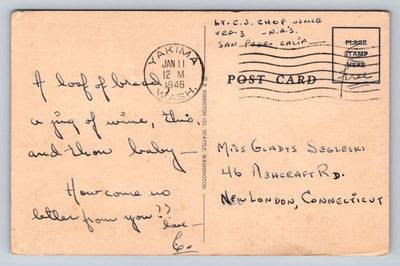 LT. C. J. CHOP USNR
VRE-3 - N.A.S.
SAN PEDRO CALIF
YAKIMA
JAN 11
12 M
1946
WASH.
PLACE
STAMP
HERE
free
POST CARD
A loaf of bread
a jug of wine, this,
and thou baby —
How come no
better from you??
love —
J. P. JOHNSTON CO. SEATTLE, WASHINGTON
MISS GLADYS SEGLESKI
46 ASHCRAFT RD.
NEW LONDON, CONNECTICUT